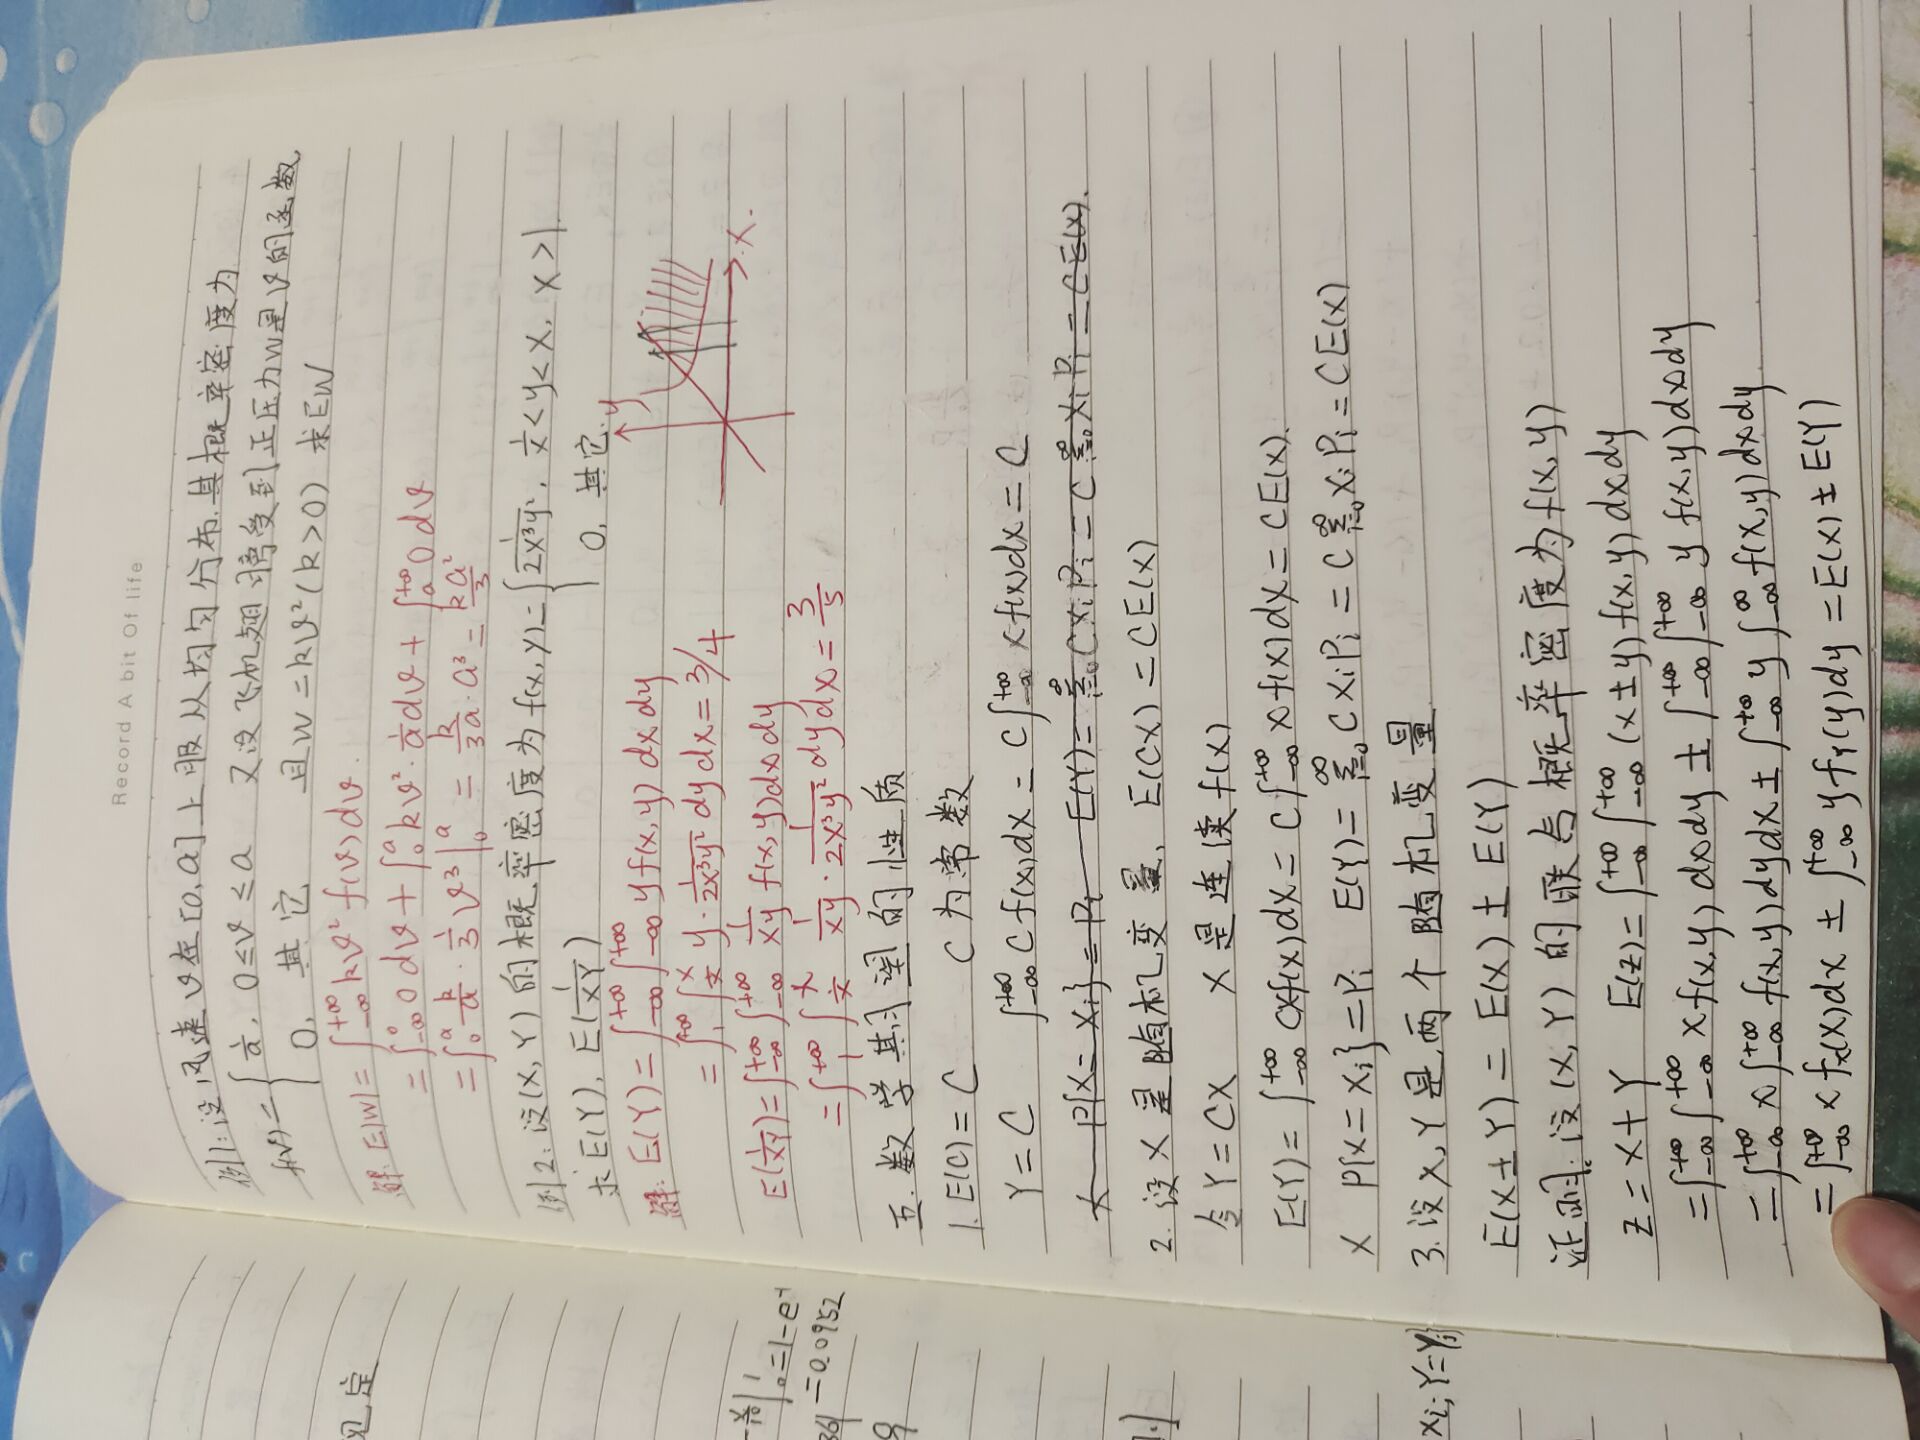 Record A bit Of life
例1:设风速v在[0,a]上服从均匀分布,其概率密度为
f(v)={1/a, 0≤v≤a 又设飞机翅膀受到正压力w是v的函数,
0, 其它 且w=kv²(k>0) 求EW
解:E(W)=∫_{-∞}^{+∞}kv²f(v)dv.
=∫_{-∞}^{0}0dv+∫_{0}^{a}kv²·1/a dv+∫_{a}^{+∞}0dv
=∫_{0}^{a}k/a·1/3v³|_{0}^{a}=k/3a·a³=ka²/3
例2:设(X,Y)的概率密度为f(x,y)={1/2x³y², 1/x<y<x, x>1
求E(Y), E(1/XY) 0, 其它.
y
x.
解:E(Y)=∫_{-∞}^{+∞}∫_{-∞}^{+∞}yf(x,y)dxdy
=∫_{1}^{+∞}∫_{1/x}^{x}y·1/2x³y²dydx=3/4
E(1/XY)=∫_{-∞}^{+∞}∫_{-∞}^{+∞}1/xy f(x,y)dxdy
=∫_{1}^{+∞}∫_{1/x}^{x}1/xy·1/2x³y²dydx=3/5
五.数学期望的性质
1.E(C)=C C为常数
Y=C ∫_{-∞}^{+∞}Cf(x)dx=C∫_{-∞}^{+∞}xf(x)dx=C
X P{X=Xi}=Pi E(Y)=∑_{i=0}^{∞}CXiPi=C∑_{i=0}^{∞}XiPi=CE(X).
2.设X是随机变量, E(CX)=CE(X)
令Y=CX X是连续f(x)
E(Y)=∫_{-∞}^{+∞}cxf(x)dx=C∫_{-∞}^{+∞}xf(x)dx=CE(X).
X P{X=Xi}=Pi E(Y)=∑_{i=0}^{∞}CXiPi=C∑_{i=0}^{∞}XiPi=CE(X)
3.设X,Y是两个随机变量
E(X±Y)=E(X)±E(Y)
证明:设(X,Y)的联合概率密度为f(x,y)
Z=X+Y E(Z)=∫_{-∞}^{+∞}∫_{-∞}^{+∞}(x±y)f(x,y)dxdy
=∫_{-∞}^{+∞}∫_{-∞}^{+∞}xf(x,y)dxdy±∫_{-∞}^{+∞}∫_{-∞}^{+∞}yf(x,y)dxdy
=∫_{-∞}^{+∞}x∫_{-∞}^{+∞}f(x,y)dydx±∫_{-∞}^{+∞}y∫_{-∞}^{∞}f(x,y)dxdy
=∫_{-∞}^{+∞}xf_X(x)dx±∫_{-∞}^{+∞}yf_Y(y)dy=E(X)±E(Y)
=1-e⁻¹
=0.0952
xi;Y=Yi}